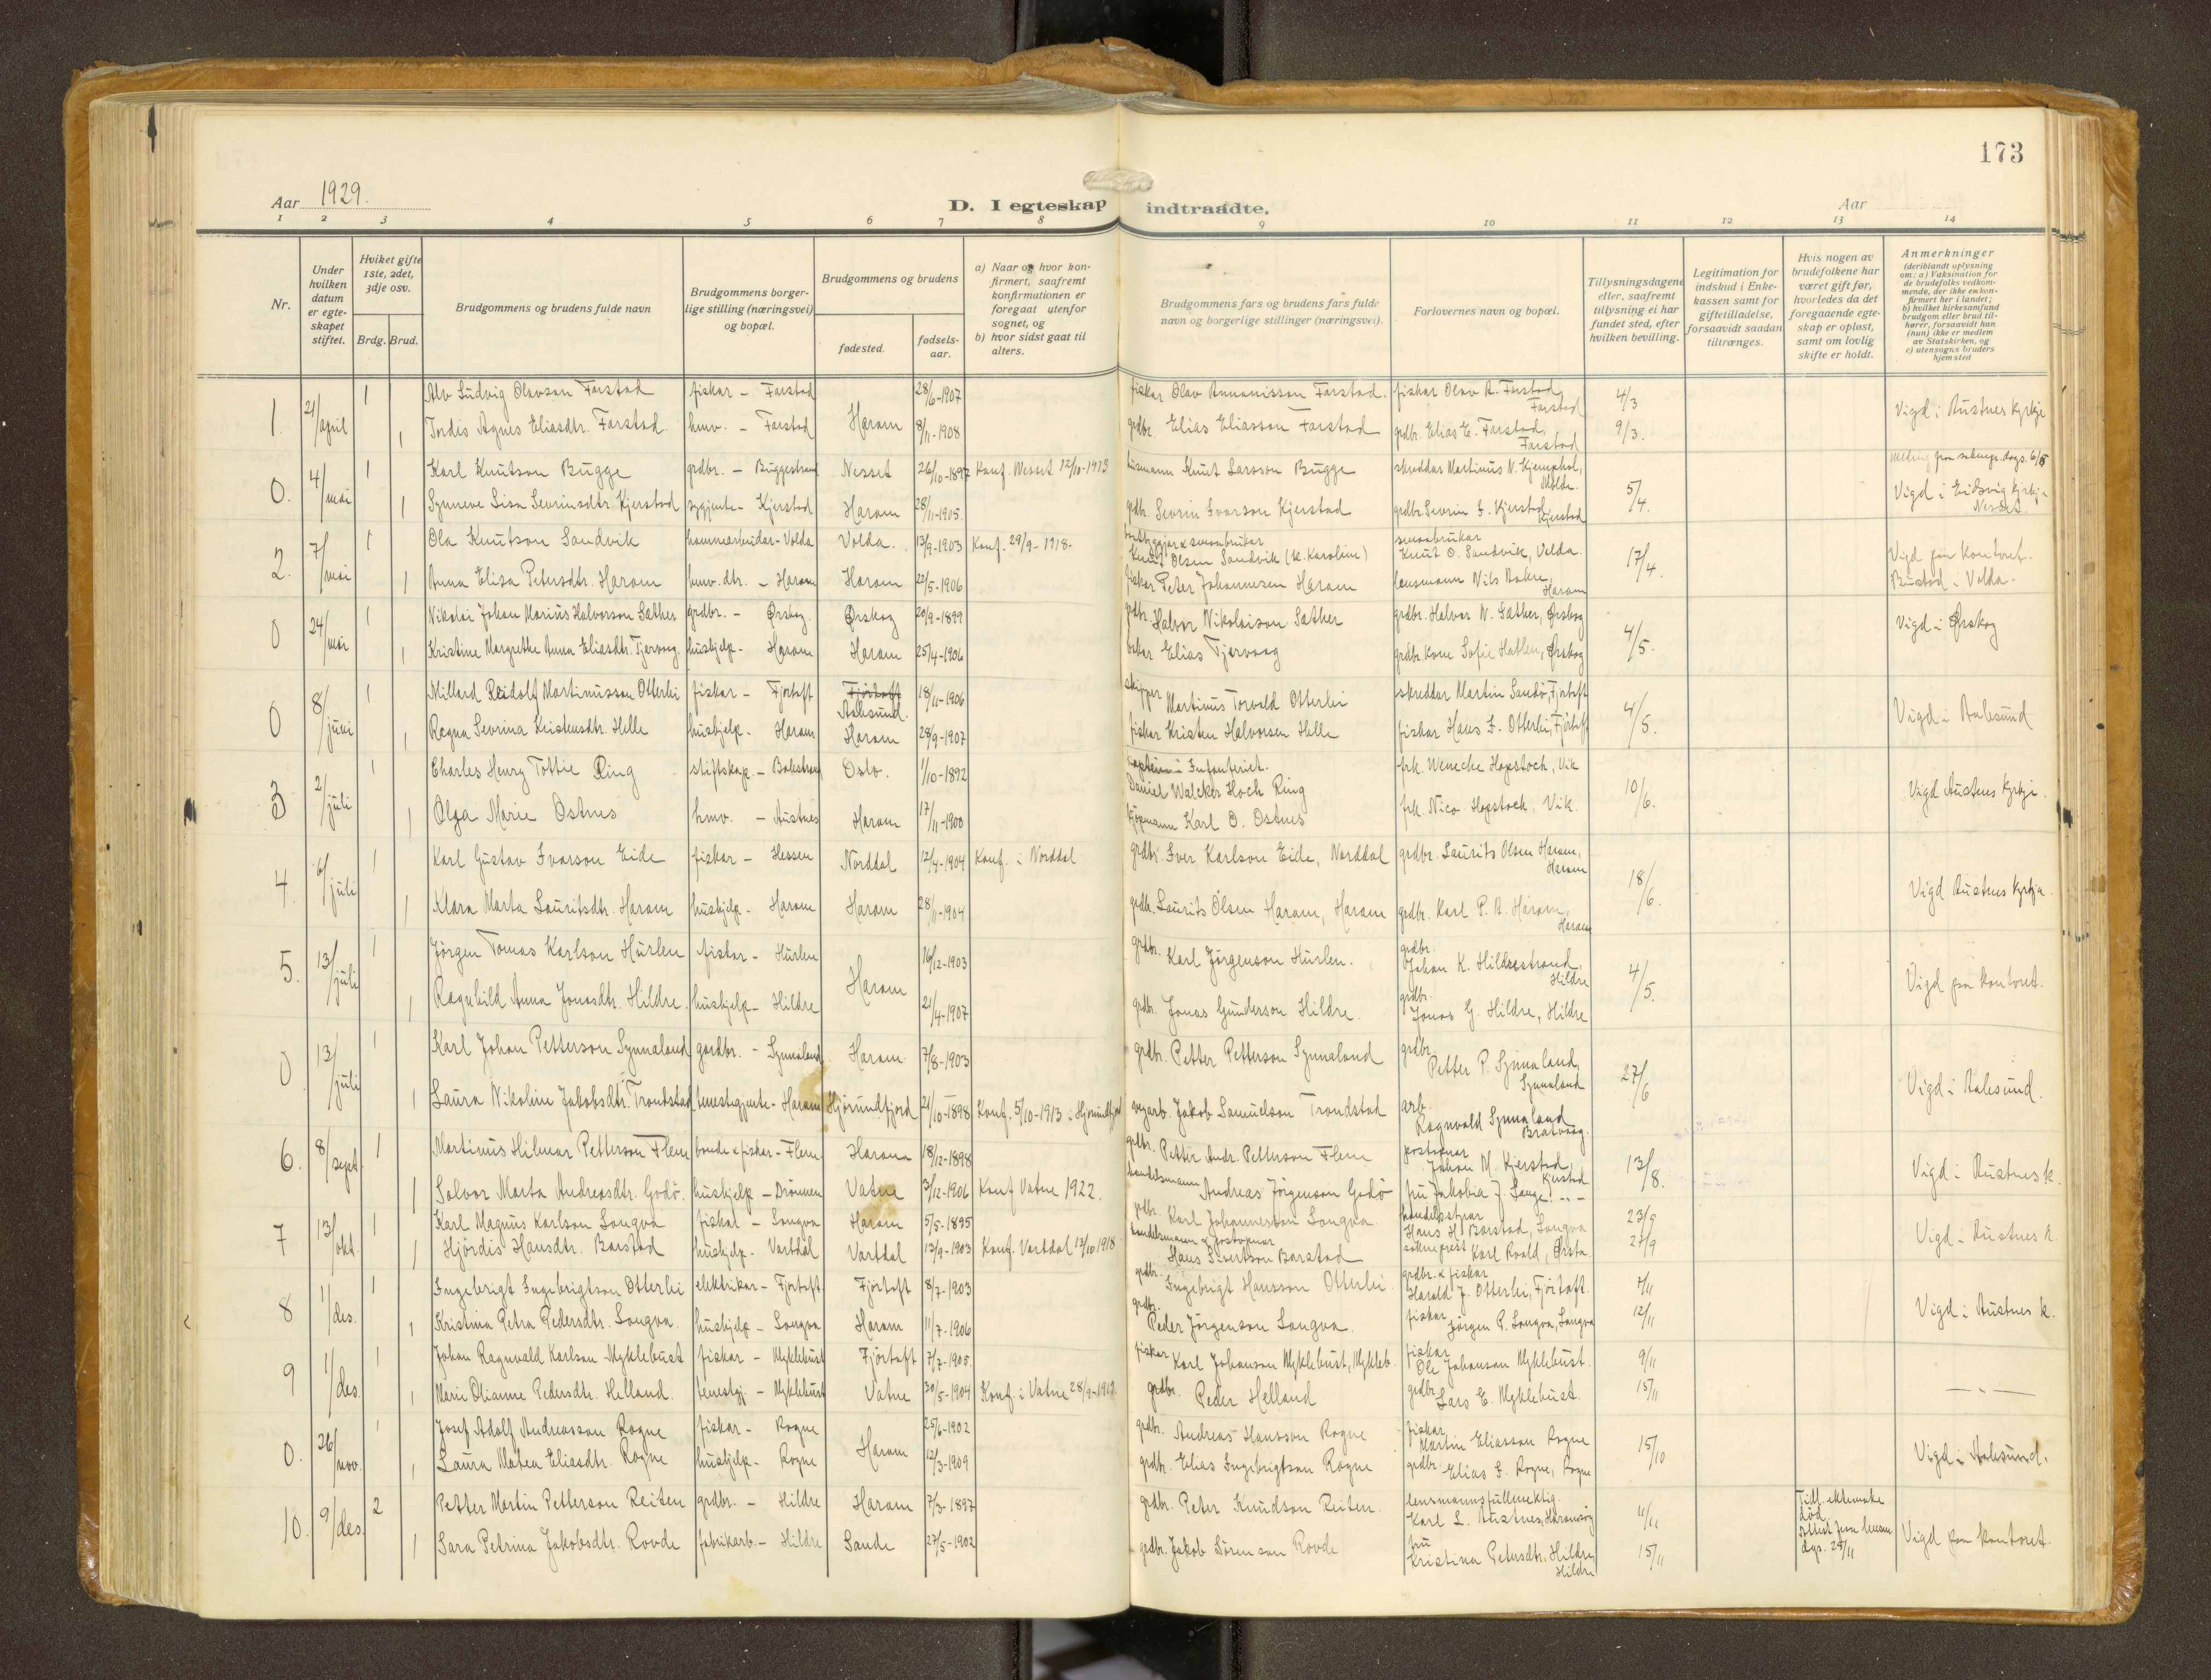 173
Aar 1929.
D. I egteskap indtraadte.
Aar
1 2 3 4 5 6 7 8 9 10 11 12 13 14
Nr.
Under hvilken datum er egte-skapet stiftet.
Hviket gifte 1ste, 2det, 3dje osv.
Brdg. Brud.
Brudgommens og brudens fulde navn
Brudgommens borger-lige stilling (næringsvei) og bopæl.
Brudgommens og brudens
fødested.
fødsels-aar.
a) Naar og hvor kon-firmert, saafremt konfirmationen er foregaat utenfor sognet, og
b) hvor sidst gaat til alters.
Brudgommens fars og brudens fars fulde navn og borgerlige stillinger (næringsvei).
Forlovernes navn og bopæl.
Tillysningsdagene eller, saafremt tillysning ei har fundet sted, efter hvilken bevilling.
Legitimation for indskud i Enke-kassen samt for giftetilladelse, forsaavidt saadan tiltrænges.
Hvis nogen av brudefolkene har været gift før, hvorledes da det foregaaende egte-skap er opløst, samt om lovlig skifte er holdt.
Anmerkninger
(deriblandt oplysning om: a) Vaksination for de brudefolks vedkom-mende, der ikke en kon-firmert her i landet; b) hvilket kirkesamfund brudgom eller brud til-hører, forsaavidt han (hun) ikke er medlem av Statskirken, og c) utensogns bruders hjemsted
1. 21/april 1 Alv Ludvig Olavson Farstad fiskar - Farstad Haram 28/6-1907 fiskar Olav Ananiasson Farstad. fiskar Olav A. Farstad, Farstad 4/3 Vigd i Austnes kyrkje
1 Tordis Agnes Eliasdtr. Farstad. hmv. - Farstad 8/11-1908 grdbr. Elias Eliasson Farstad grdbr. Elias E. Farstad, Farstad 9/3.
0. 4/mai 1 Karl Knutson Bugge grdbr. - Buggestrand Nesset 26/10-1897 Konf. Nesset 12/10-1913 husmann Knut Larsson Bugge skreddar Martinus N. Kjemphol, Molde. 5/4. Vigd i Eidsvåg kyrkje Nesset.
1 Synneve Lisa Sevrinsdtr. Kjerstad sygjente - Kjerstad Haram 28/11-1905. grdbr. Sevrin Ivarson Kjerstad grdbr. Sevrin I. Kjerstad, Kjerstad
2. 7/mai 1 Ola Knutson Sandvik hammararbeidar - Volda Volda. 13/9-1903 Konf. 29/9-1918. Knut Olsen Sandvik (k. Karoline) smaabrukar Knut O. Sandvik, Volda. 17/4. Vigd paa kontoret. Bustad i Volda.
1 Anna Elisa Petersdtr. Haram hmv. dtr. - Haram Haram 22/5-1906 fiskar Peter Johannesen Haram lensmann Nils Bakke, Haram
0 24/mai 1 Nikolai Johan Marius Halvorson Sæther grdbr. - Ørskog. Ørskog 20/9-1899 grdbr. Halvor Nikolaison Sæther grdbr. Halvor N. Sæther, Ørskog 4/5. Vigd i Ørskog
1 Kristine Margrethe Anna Eliasdtr. Tjervaag. hushjelp - Haram Haram 25/4-1906 Elias Tjervaag grdbr.kone Sofie Hatlen, Ørskog
0 8/juni 1 Millard Reidolf Martinusson Otterlei fiskar - Fjørtoft Fjørtoft Aalesund. 18/11-1906 skipper Martinus Torvald Otterlei skreddar Martin Sandø, Fjørtoft 4/5. Vigd i Aalesund
1 Ragna Sevrina Kristensdtr. Helle hushjelp. - Haram Haram 28/9-1907 fiskar Kristen Halvorsen Helle fiskar Hans I. Otterlei, Fjørtoft
3 2/juli 1 Charles Henry Tottie Ring stiftskap. - Bakstrand Oslo. 1/10-1892 kaptein i Infanteriet. Daniel Walcker Hoch Ring frk. Wenecke Hopstock, Vik 10/6. Vigd Austnes kyrkje.
1 Olga Marie Ostnes hmv. - Austnes Haram 17/11-1900 kjøpmann Karl O. Ostnes frk. Nico Hopstock, Vik.
4. 6/juli 1 Karl Gustav Ivarson Eide fiskar - Hessen Norddal 12/4-1904 Konf. i Norddal grdbr. Iver Karlson Eide, Norddal grdbr. Laurits Olsen Haram, Haram 18/6. Vigd Austnes kyrkja.
1 Klara Marta Lauritsdtr. Haram hushjelp - Haram Haram 28/1-1904 grdbr. Laurits Olsen Haram, Haram grdbr. Karl P. A. Haram, Haram
5. 13/juli 1 Jørgen Tomas Karlson Hurlen fiskar - Hurlen Haram 16/12-1903 grdbr. Karl Jørgenson Hurlen. grdbr. Johan K. Hildrestrand, Hildre 4/5. Vigd paa kontoret.
1 Ragnhild Anna Jonasdtr. Hildre. hushjelp - Hildre 21/4-1907 grdbr. Jonas Gunderson Hildre. grdbr. Jonas G. Hildre, Hildre
0 13/juli 1 Karl Johan Petterson Synnaland gardbr. - Synnaland Haram 7/8-1903 grdbr. Petter Petterson Synnaland grdbr. Petter P. Synnaland, Synnaland 27/6 Vigd i Aalesund.
1 Laura Nikoline Jakobsdtr. Trondstad tenestegjente - Haram Hjørundfjord 21/10-1898 Konf. 5/10-1913 i Hjørundfjord vegarb. Jakob Samuelson Trondstad arb. Ragnvald Synnaland Bratvaag.
6. 8/sept. 1 Martinus Hilmar Petterson Flem bonde & fiskar - Flem. Haram 18/12-1898 grdbr. Petter Andr. Petterson Flem postopnar Johan M. Kjerstad, Kjerstad 13/8. Vigd i Austnes k.
1 Solvor Marta Andreasdtr. Godø. hushjelp - Drønnen Vatne 3/12-1906 Konf Vatne 1922. handelsmann Andreas Jørgenson Godø fru Jakobia J. Lange - " -
7 13/okt. 1 Karl Magnus Karlson Longva fiskar - Longva Haram 5/5-1895 grdbr. Karl Johanneson Longva. handelsstyrar Hans H. Barstad, Longva 23/9 Vigd i Austnes k.
1 Hjørdis Hansdtr. Barstad hushjelp. - Vartdal Vartdal 13/9-1903 Konf. Vartdal 13/10 1918 handelsmann & postopnar Hans Sivertson Barstad sokneprest Karl Roald, Ørsta 27/9
8 1/des. 1 Ingebrigt Ingebrigtson Otterlei elektrikar - Fjørtoft Fjørtoft 8/7-1903 grdbr. Ingebrigt Hansson Otterlei. grdbr. & fiskar Harald J. Otterlei, Fjørtoft. 7/11 Vigd i Austnes k.
1 Kristina Petra Pedersdtr. Longva. hushjelp - Longva Haram 11/7-1906 grdbr. Peder Jørgenson Longva. fiskar Jørgen P. Longva, Longva 12/11
9 1/des. 1 Johan Ragnvald Karlson Myklebust fiskar - Myklebust Fjørtoft 7/7-1905. fiskar Karl Johanson Myklebust, Mykleb. fiskar Ole Johanson Myklebust. 9/11 - " -
1 Marie Olianne Pedersdtr. Helland. tenestgj. - Myklebust Vatne 30/5-1904 Konf. i Vatne 28/9-1919. grdbr. Peder Helland grdbr. Lars E. Myklebust. 15/11
0. 26/nov. 1 Josef Adolf Andreasson Rogne fiskar - Rogne Haram 25/6-1902 grdbr. Andreas Hansson Rogne fiskar Martin Eliasson Rogne 15/10 Vigd i Aalesund.
1 Laura Matea Eliasdtr. Rogne hushjelp - Rogne 12/3-1909 grdbr. Elias Ingebrigtson Rogne grdbr. Elias I. Rogne, Rogne
10. 9/des. 2 Petter Martin Petterson Reiten grdbr. - Hildre Haram 7/3-1897 grdbr. Peter Knudson Reiten. lensmannsfullmektig. Karl L. Austnes, Haramsøy 11/11 Tidl. ektemake død. Attest fraa lensm. dgs. 25/11 Vigd paa kontoret.
1 Sara Petrina Jakobsdtr. Rovde fabrikarb. - Hildre Sande 27/5-1902 grdbr. Jakob Sørenson Rovde fru Kristina Petersdtr. Hildre, Hildre 15/11